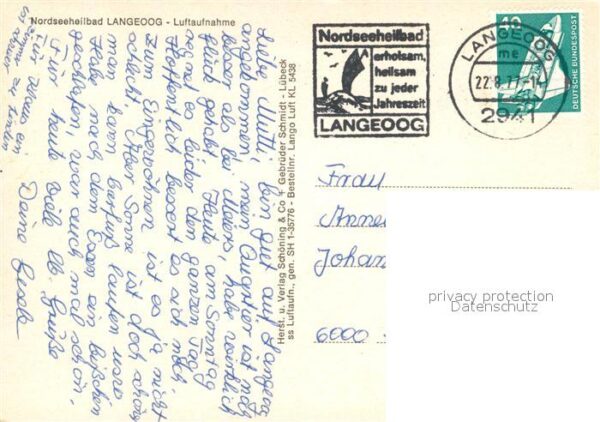 Nordseeheilbad LANGEOOG - Luftaufnahme
Liebe Mutti, bin gut auf Langeoog
angekommen, mein Quartier ist noch
besser als bei Meiers, habe
Glück gehabt. Heute am Sonntag
regnete es leider den ganzen Tag.
Hoffentlich bessert es sich noch.
Zum Eingewöhnen ist es ja nicht
schlecht. Aber Sonne ist doch schöner
man kann barfuß laufen usw.
Habe nach dem Essen ein bißchen
geschlafen, war auch mal schön.
Für heute viele lb. Grüße
Deine Gisela
Herst. u. Verlag Schöning & Co + Gebrüder Schmidt - Lübeck
ss Luftaufn., gen. SH 1-35776 - Bestellnr. Lango Luft KL 5438
Nordseeheilbad
erholsam,
heilsam
zu jeder
Jahreszeit
LANGEOOG
LANGEOOG
me
22.8.77-14
2941
40
DEUTSCHE BUNDESPOST
Frau
Anne
Johan
6000
privacy protection
Datenschutz